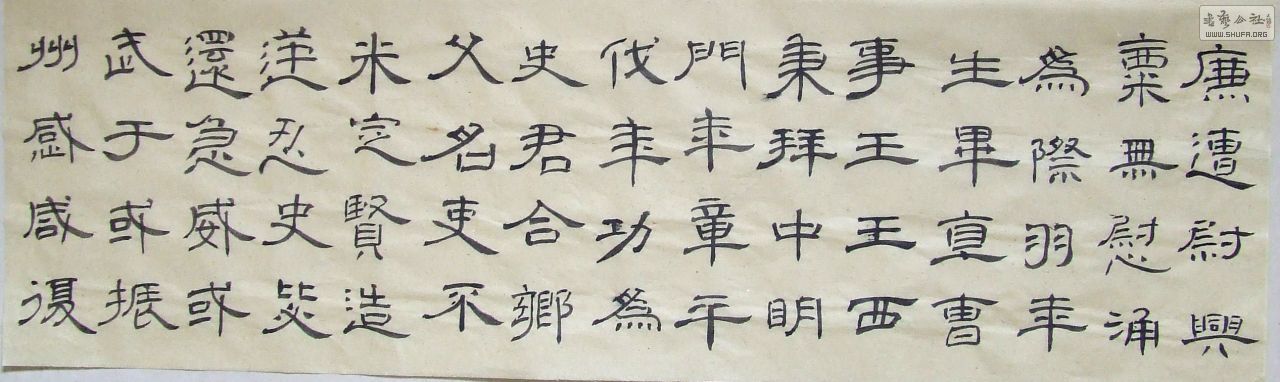 廉遭尉興
粟無慰涌
為際羽年
生畢直曹
事王王西
秉拜中明
門年章平
伐年功為
史君合鄉
父名吏不
米定賢造
逆忍史
還急威或
武于或振
州感咸復
书艺公社
WWW.SHUFA.ORG